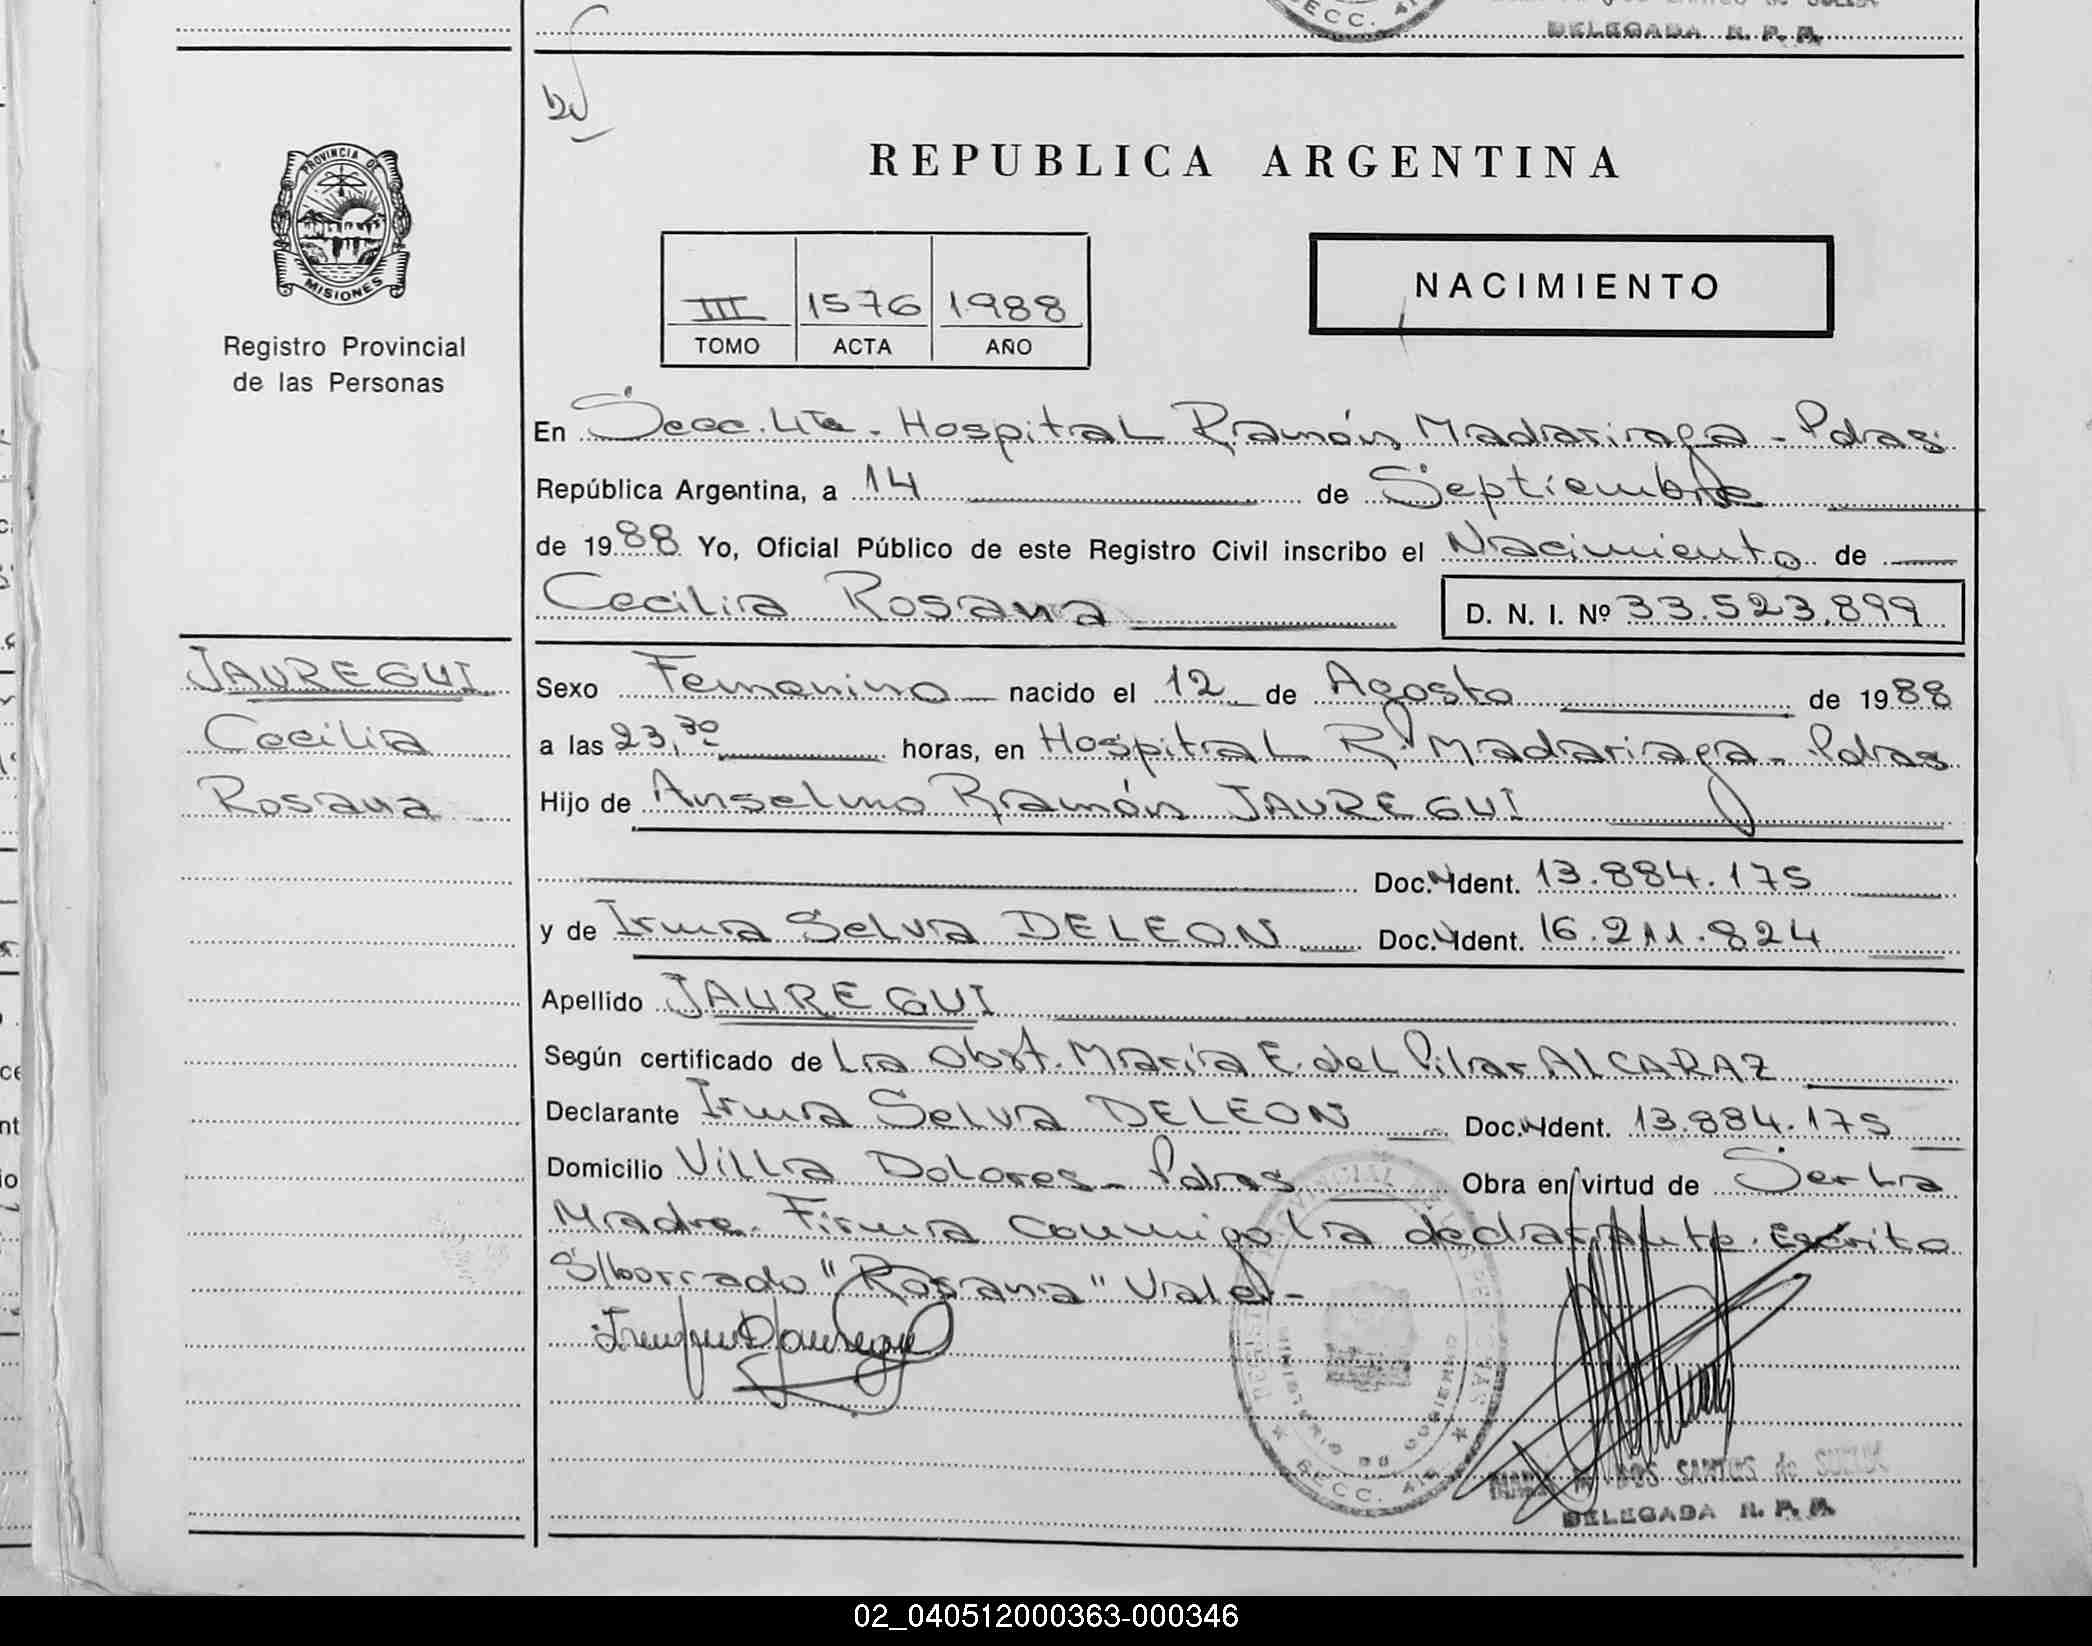 DELEGADA R. P. P.
REPUBLICA ARGENTINA
PROVINCIA DE
MISIONES
Registro Provincial
de las Personas
NACIMIENTO
III 1576 1988
TOMO ACTA AÑO
En Secc. 4ta - Hospital Ramón Madariaga - Pdas
República Argentina, a 14 de Septiembre
de 1988 Yo, Oficial Público de este Registro Civil inscribo el Nacimiento de
Cecilia Rosana D. N. I. Nº 33.523.899
JAUREGUI
Cecilia
Rosana
Sexo Femenino nacido el 12 de Agosto de 1988
a las 23,30 horas, en Hospital R. Madariaga - Pdas
Hijo de Anselmo Ramón JAUREGUI
Doc. Ident. 13.884.175
y de Irma Selva DELEON Doc. Ident. 16.211.824
Apellido JAUREGUI
Según certificado de La Obst. María E. del Pilar ALCARAZ
Declarante Irma Selva DELEON Doc. Ident. 13.884.175
Domicilio Villa Dolores - Pdas Obra en virtud de Ser la
Madre. Firma conmigo la declarante. Escrito
S/borrado "Rosana" Vale -
MINISTERIO DE GOBIERNO
SECC. 4ta
DOS SANTOS de
DELEGADA R. P. P.
02_040512000363-000346